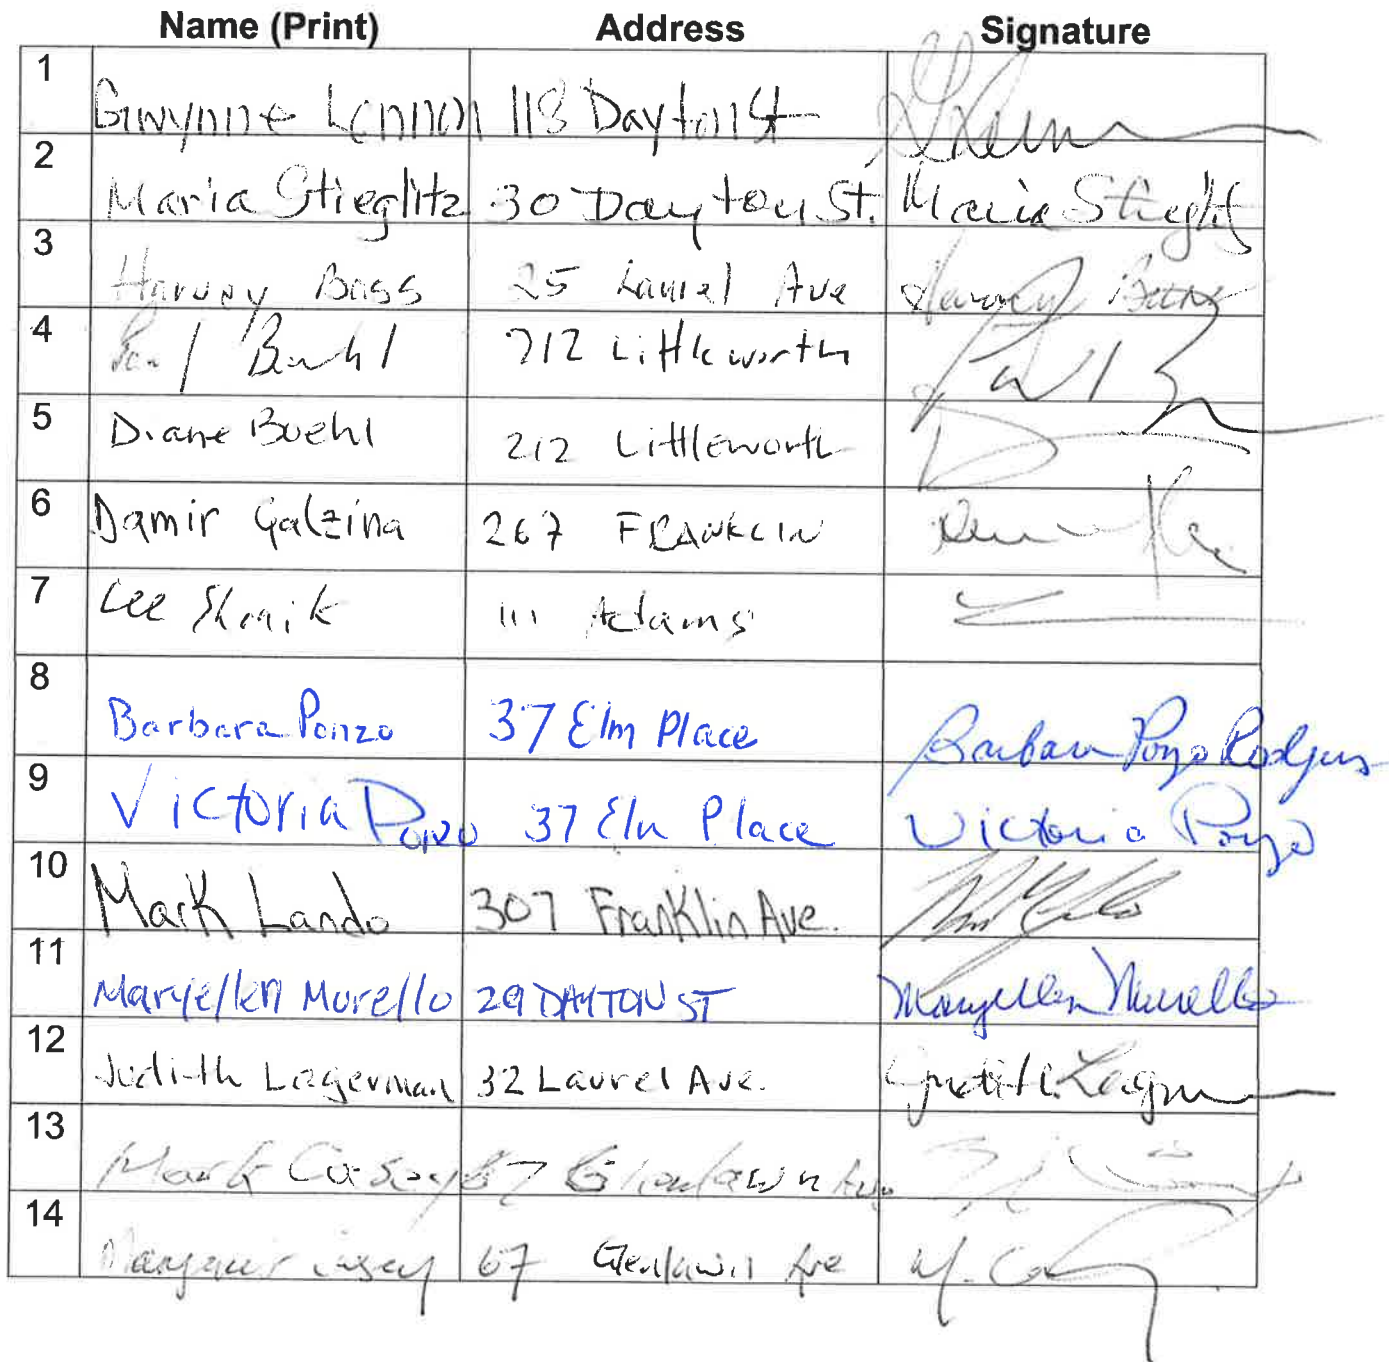 Name (Print) Address Signature
1 Gwynne Lennon 118 Dayton St
2 Maria Stieglitz 30 Dayton St. Maria Stieglitz
3 Harvey Bass 25 Laurel Ave Harvey Bass
4 Paul Buehl 212 Littleworth Paul
5 Diane Buehl 212 Littleworth
6 Damir Galzina 267 FRANKLIN
7 Lee 111 Adams
8 Barbara Ponzo 37 Elm Place Barbara Ponzo Rodgers
9 Victoria Ponzo 37 Elm Place Victoria Ponzo
10 Mark Lando 307 Franklin Ave.
11 Maryellen Murello 29 DAYTON ST Maryellen Murello
12 Judith Lagerman 32 Laurel Ave. Judith Lagerman
13 Mark Casey 67 Glenlawn Ave
14 Casey 67 Glenlawn Ave M. Casey